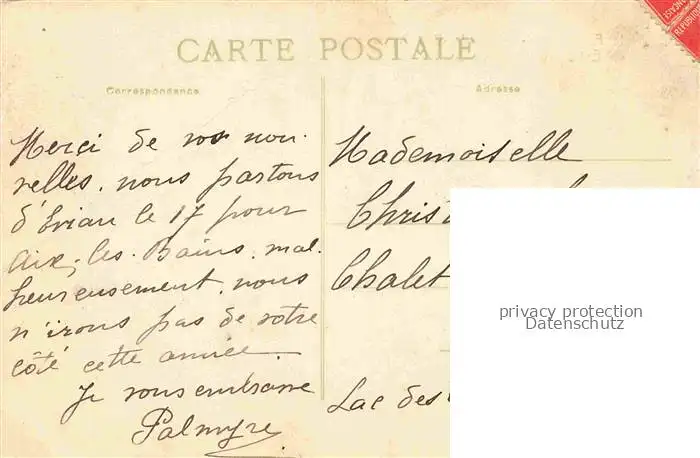 CARTE POSTALE
Correspondance
Adresse
Merci de vos nou-
velles, nous partons
d'Évian le 17 pour
Aix-les-Bains, mal-
heureusement, nous
n'irons pas de votre
côté cette année.
Je vous embrasse
Palmyre
Mademoiselle
Chris
Chalet
Lac des
privacy protection
Datenschutz